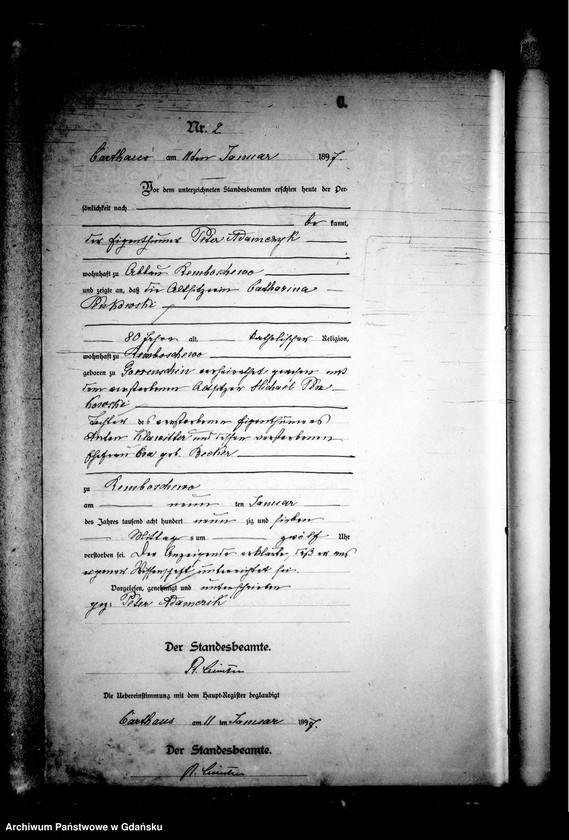 C.
Nr. 2
Carthaus am 11ten Januar 1897.
Vor dem unterzeichneten Standesbeamten erschien heute der Per-
sönlichkeit nach
be kannt,
der Eigenthümer Peter Adamczyk
wohnhaft zu Abbau Remboschewo
und zeigte an, daß die Altsitzerin Catharina
80 Jahre alt, katholischer Religion,
wohnhaft zu Remboschewo
geboren zu verheirathet gewesen mit
dem verstorbenen Altsitzer Michael
Tochter des verstorbenen Eigenthümers
Anton Klawitter und dessen verstorbenen
Ehefrau Eva geb. Becker
zu Remboschewo
am neun ten Januar
des Jahres tausend acht hundert neun zig und sieben
Mittags um zwölf Uhr
verstorben sei. Der Anzeigende erklärte, daß er aus
eigener Wissenschaft unterrichtet sei.
Vorgelesen, genehmigt und unterschrieben
gez. Peter Adamczik
Der Standesbeamte.
Die Uebereinstimmung mit dem Haupt-Register beglaubigt
Carthaus am 11 ten Januar 1897.
Der Standesbeamte.
Archiwum Państwowe w Gdańsku